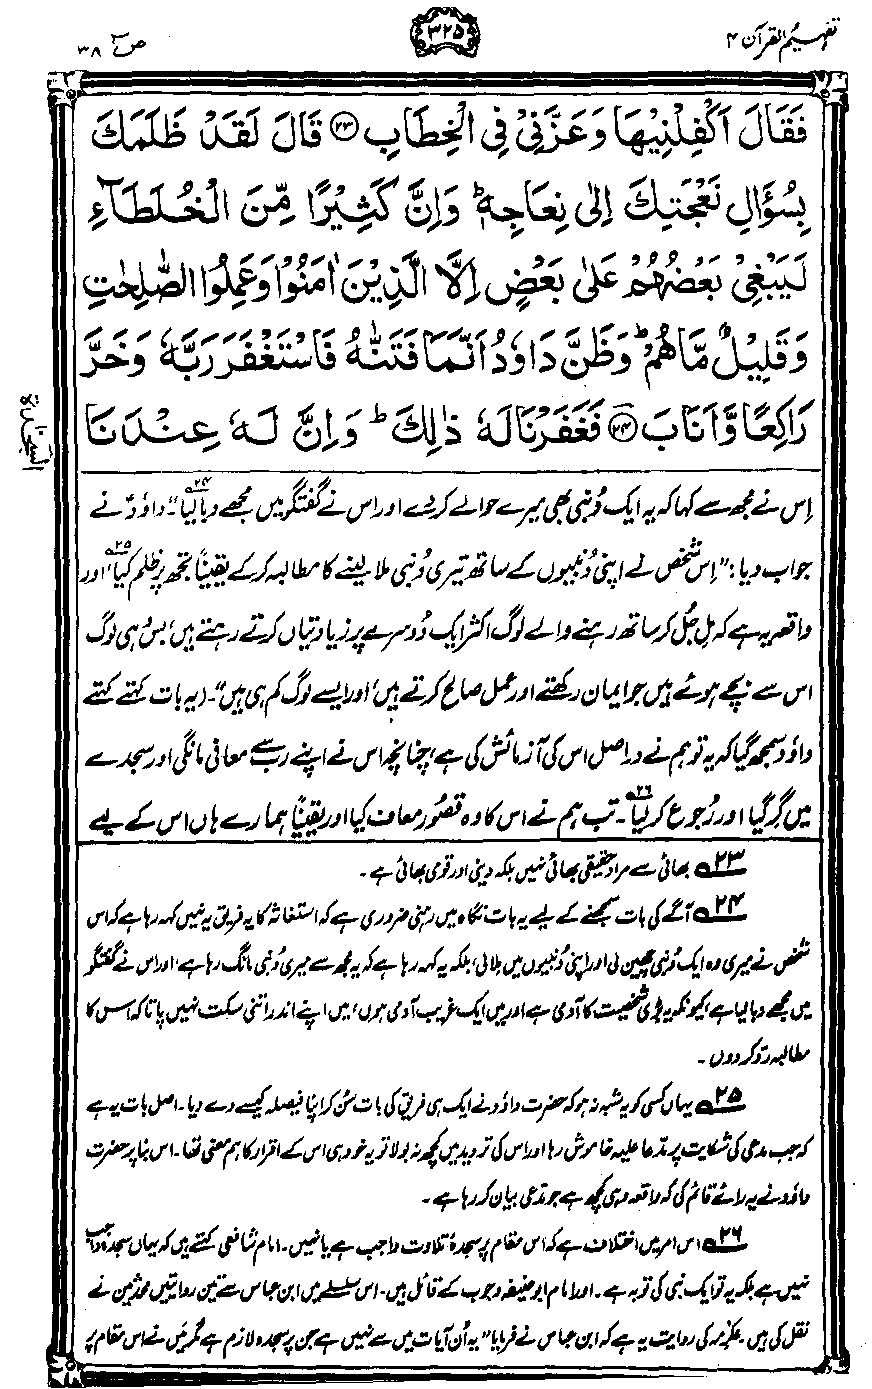 تفہیم القرآن ۴
۳۲۵
صٓ ۳۸
فَقَالَ اَكْفِلْنِیْهَا وَعَزَّنِیْ فِی الْخِطَابِ ﴿۲۳﴾ قَالَ لَقَدْ ظَلَمَكَ
بِسُؤَالِ نَعْجَتِكَ اِلٰی نِعَاجِهٖ ؕ وَاِنَّ كَثِیْرًا مِّنَ الْخُلَطَآءِ
لَیَبْغِیْ بَعْضُهُمْ عَلٰی بَعْضٍ اِلَّا الَّذِیْنَ اٰمَنُوْا وَعَمِلُوا الصّٰلِحٰتِ
وَقَلِیْلٌ مَّا هُمْ ؕ وَظَنَّ دَاوٗدُ اَنَّمَا فَتَنّٰهُ فَاسْتَغْفَرَ رَبَّهٗ وَخَرَّ
رَاكِعًا وَّاَنَابَ ﴿۲۴﴾ فَغَفَرْنَا لَهٗ ذٰلِكَ ؕ وَاِنَّ لَهٗ عِنْدَنَا
السجدۃ
اِس نے مجھ سے کہا کہ یہ ایک دُنبی بھی میرے حوالے کر دے اور اس نے گفتگو میں مجھے دبا لیا“۲۴؎ داؤدؑ نے
جواب دیا: ”اِس شخص نے اپنی دُنبیوں کے ساتھ تیری دُنبی ملا لینے کا مطالبہ کر کے یقیناً تجھ پر ظلم کیا۲۵؎، اور
واقعہ یہ ہے کہ مِل جُل کر ساتھ رہنے والے لوگ اکثر ایک دُوسرے پر زیادتیاں کرتے رہتے ہیں، بس وہی لوگ
اس سے بچے ہوئے ہیں جو ایمان رکھتے اور عمل صالح کرتے ہیں، اور ایسے لوگ کم ہی ہیں“۔ (یہ بات کہتے کہتے
داؤد سمجھ گیا کہ یہ تو ہم نے دراصل اس کی آزمائش کی ہے، چنانچہ اس نے اپنے رب سے معافی مانگی اور سجدے
میں گر گیا اور رُجوع کر لیا۲۶؎۔ تب ہم نے اس کا وہ قصُور معاف کیا اور یقیناً ہمارے ہاں اس کے لیے
۲۳؎ بھائی سے مراد حقیقی بھائی نہیں بلکہ دینی اور قومی بھائی ہے۔
۲۴؎ آگے کی بات سمجھنے کے لیے یہ بات نگاہ میں رہنی ضروری ہے کہ استغاثہ کا یہ فریق یہ نہیں کہہ رہا ہے کہ اس
شخص نے میری وہ ایک دُنبی چھین لی اور اپنی دُنبیوں میں ملا لی، بلکہ یہ کہہ رہا ہے کہ یہ مجھ سے میری دُنبی مانگ رہا ہے، اور اس نے گفتگو
میں مجھے دبا لیا ہے، کیونکہ یہ بڑی شخصیت کا آدمی ہے اور میں ایک غریب آدمی ہوں، میں اپنے اندر اتنی سکت نہیں پاتا کہ اس کا
مطالبہ رد کر دوں۔
۲۵؎ یہاں کسی کو یہ شبہ نہ ہو کہ حضرت داؤد نے ایک ہی فریق کی بات سُن کر اپنا فیصلہ کیسے دے دیا۔ اصل بات یہ ہے
کہ جب مدعی کی شکایت پر مدعا علیہ خاموش رہا اور اس کی تردید میں کچھ نہ بولا تو یہ خود ہی اس کے اقرار کا ہم معنی تھا۔ اس بنا پر حضرت
داؤد نے یہ رائے قائم کی کہ واقعہ وہی کچھ ہے جو مدعی بیان کر رہا ہے۔
۲۶؎ اس امر میں اختلاف ہے کہ اس مقام پر سجدۂ تلاوت واجب ہے یا نہیں۔ امام شافعی کہتے ہیں کہ یہاں سجدہ واجب
نہیں ہے بلکہ یہ تو ایک نبی کی توبہ ہے۔ اور امام ابوحنیفہ وجوب کے قائل ہیں۔ اس سلسلے میں ابن عباس سے تین روایتیں محدثین نے
نقل کی ہیں۔ عکرِمہ کی روایت یہ ہے کہ ابن عباس نے فرمایا ”یہ اُن آیات میں سے نہیں ہے جن پر سجدہ لازم ہے مگر میں نے اس مقام پر